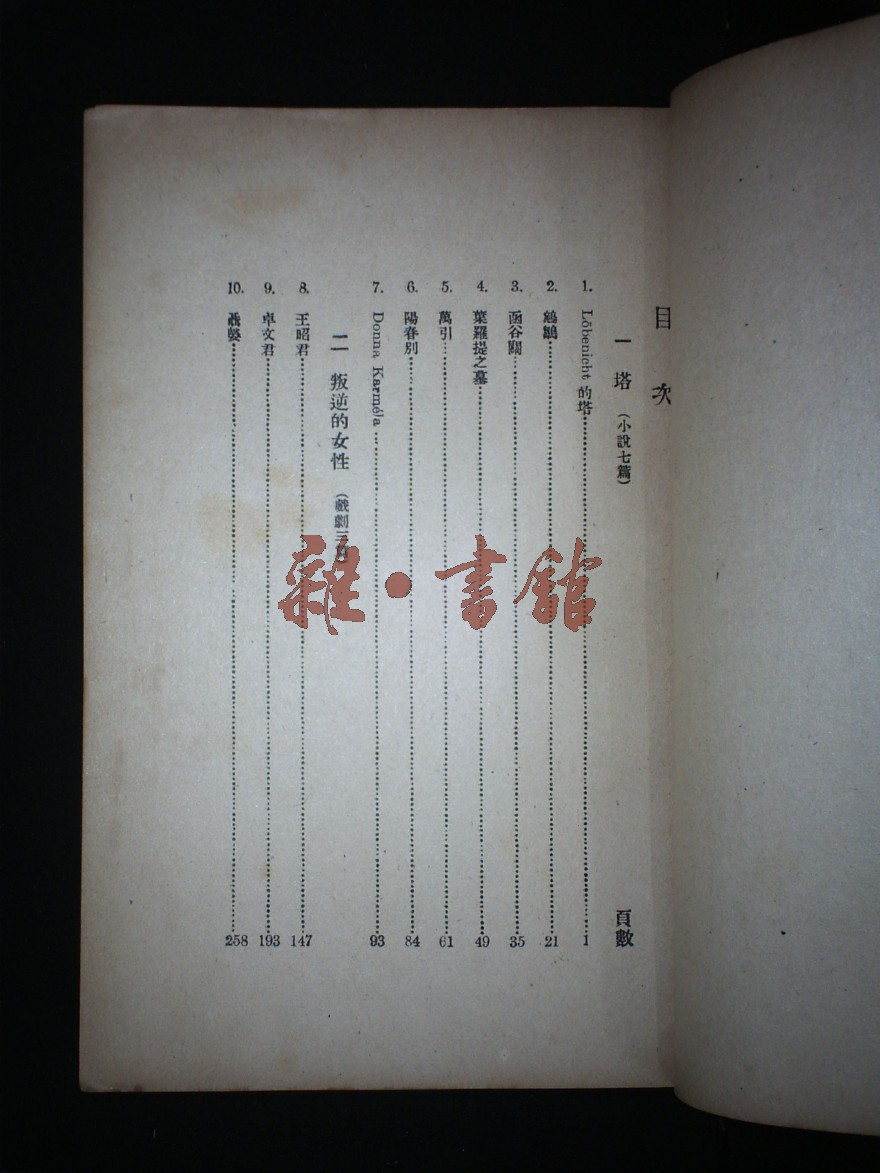 目次
一 塔 (小說七篇) 頁數
1. Löbenicht 的塔 1
2. 鵷鶵 21
3. 函谷關 35
4. 葉羅提之墓 49
5. 萬引 61
6. 陽春別 84
7. Donna Karméla 93
二 叛逆的女性 (戲劇三篇)
8. 王昭君 147
9. 卓文君 193
10. 聶嫈 258
雜·書館